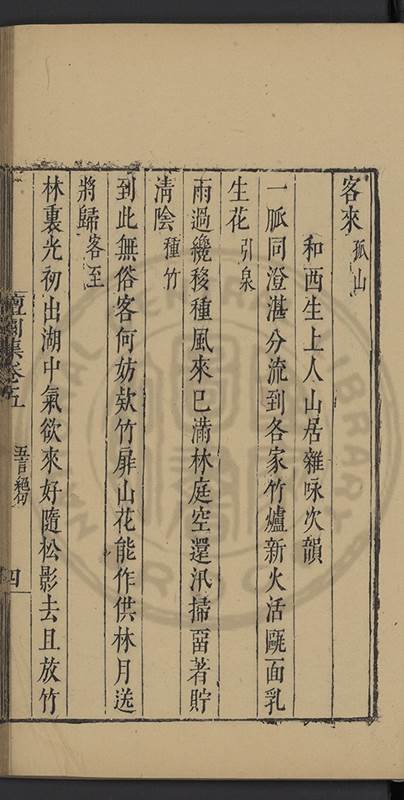 客來孤山
和西生上人山居雜咏次韻
一脈同澄湛分流到各家竹爐新火活甌面乳
生花引泉
雨過纔移種風來已滿林庭空還汛掃畱著貯
清陰種竹
到此無俗客何妨欵竹扉山花能作供林月送
將歸客至
林裏光初出湖中氣欲來好隨松影去且放竹
集卷五
五言絕句
四